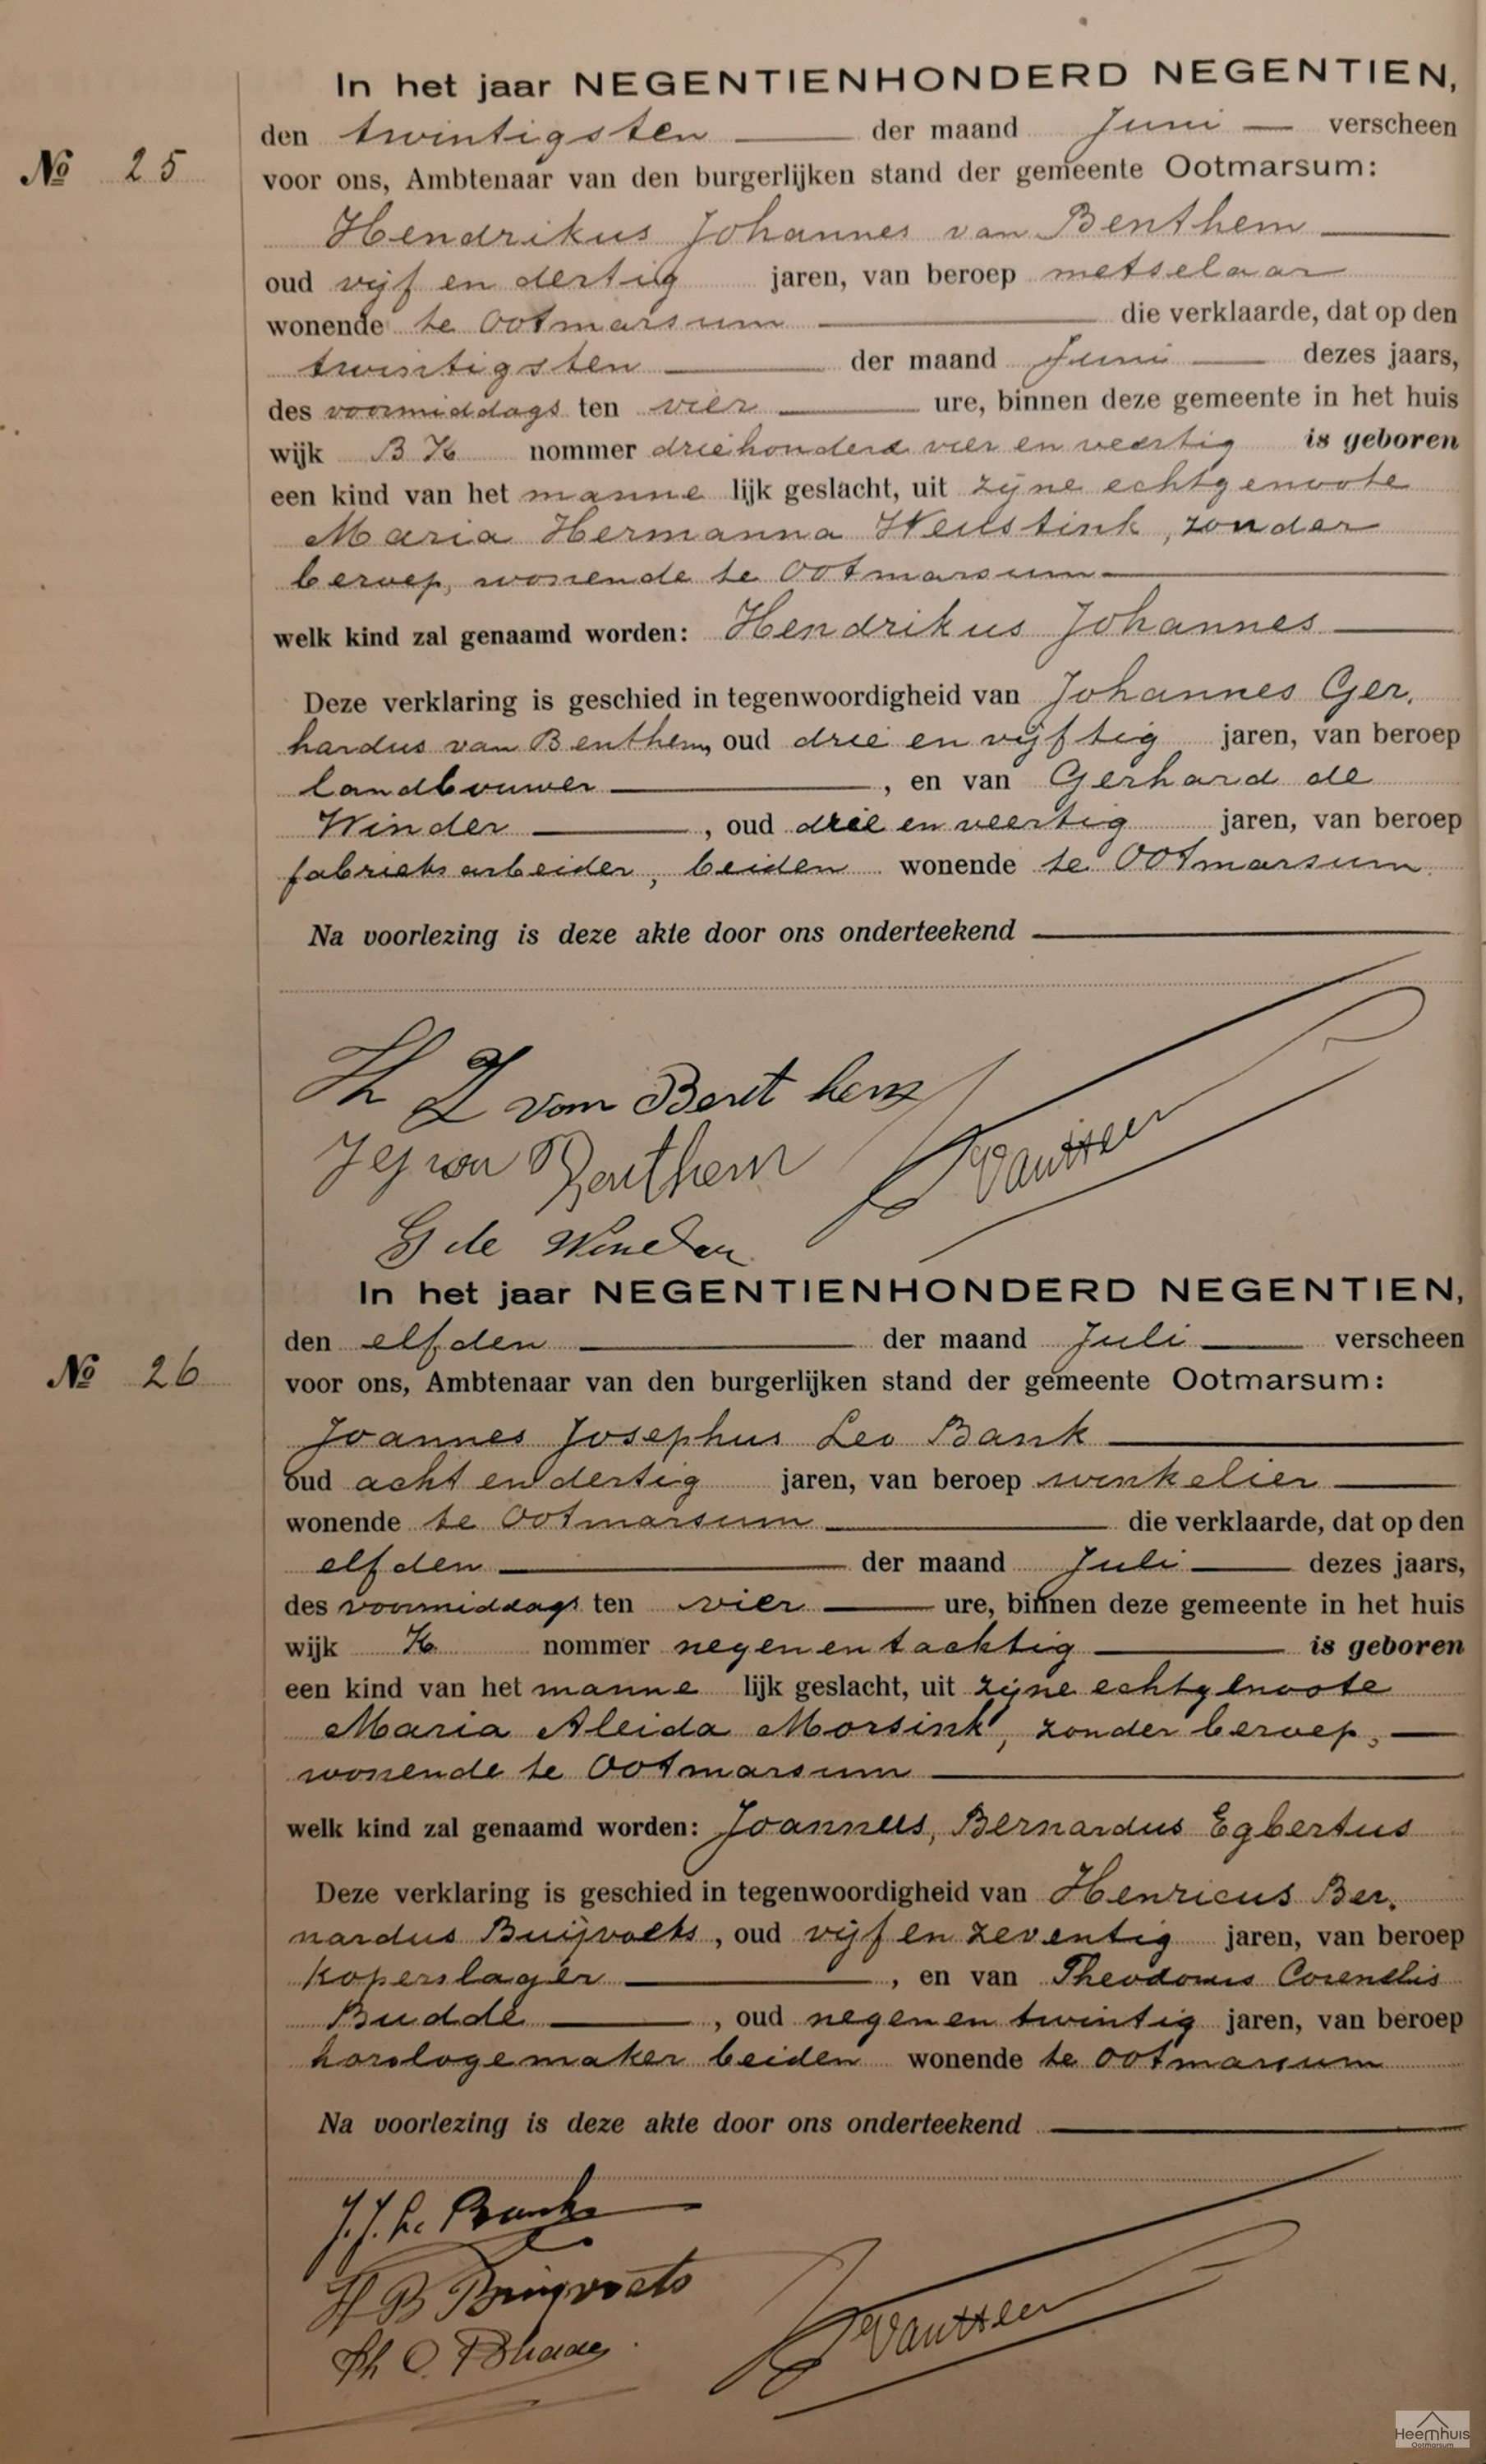 In het jaar NEGENTIENHONDERD NEGENTIEN,
den twintigsten der maand Juni verscheen
No 25
voor ons, Ambtenaar van den burgerlijken stand der gemeente Ootmarsum:
Hendrikus Johannes van Benthem
oud vijf en dertig jaren, van beroep metselaar
wonende te Ootmarsum die verklaarde, dat op den
twintigsten der maand Juni dezes jaars,
des voormiddags ten vier ure, binnen deze gemeente in het huis
wijk B K nommer driehonderd vier en veertig is geboren
een kind van het manne lijk geslacht, uit zijne echtgenoote
Maria Hermanna Heustink, zonder
beroep, wonende te Ootmarsum
welk kind zal genaamd worden: Hendrikus Johannes
Deze verklaring is geschied in tegenwoordigheid van Johannes Ger,
hardus van Benthem, oud drie en vijftig jaren, van beroep
landbouwer, en van Gerhard de
Winder, oud drie en veertig jaren, van beroep
fabrieksarbeider, beiden wonende te Ootmarsum.
Na voorlezing is deze akte door ons onderteekend
H J van Benthem
J G van Benthem
G de Winder
In het jaar NEGENTIENHONDERD NEGENTIEN,
den elfden der maand Juli verscheen
No 26
voor ons, Ambtenaar van den burgerlijken stand der gemeente Ootmarsum:
Joannes Josephus Leo Bank
oud acht en dertig jaren, van beroep winkelier
wonende te Ootmarsum die verklaarde, dat op den
elfden der maand Juli dezes jaars,
des voormiddags ten vier ure, binnen deze gemeente in het huis
wijk K nommer negen en tachtig is geboren
een kind van het manne lijk geslacht, uit zijne echtgenoote
Maria Aleida Morsink, zonder beroep,
wonende te Ootmarsum
welk kind zal genaamd worden: Joannes, Bernardus Egbertus
Deze verklaring is geschied in tegenwoordigheid van Henricus Ber,
nardus Buijvoets, oud vijf en zeventig jaren, van beroep
koperslager, en van Theodorus Cornelis
Budde, oud negen en twintig jaren, van beroep
horologemaker beiden wonende te Ootmarsum
Na voorlezing is deze akte door ons onderteekend
J. J. L. Bank
H B Buijvoets
Th C.
Heemhuis
Ootmarsum